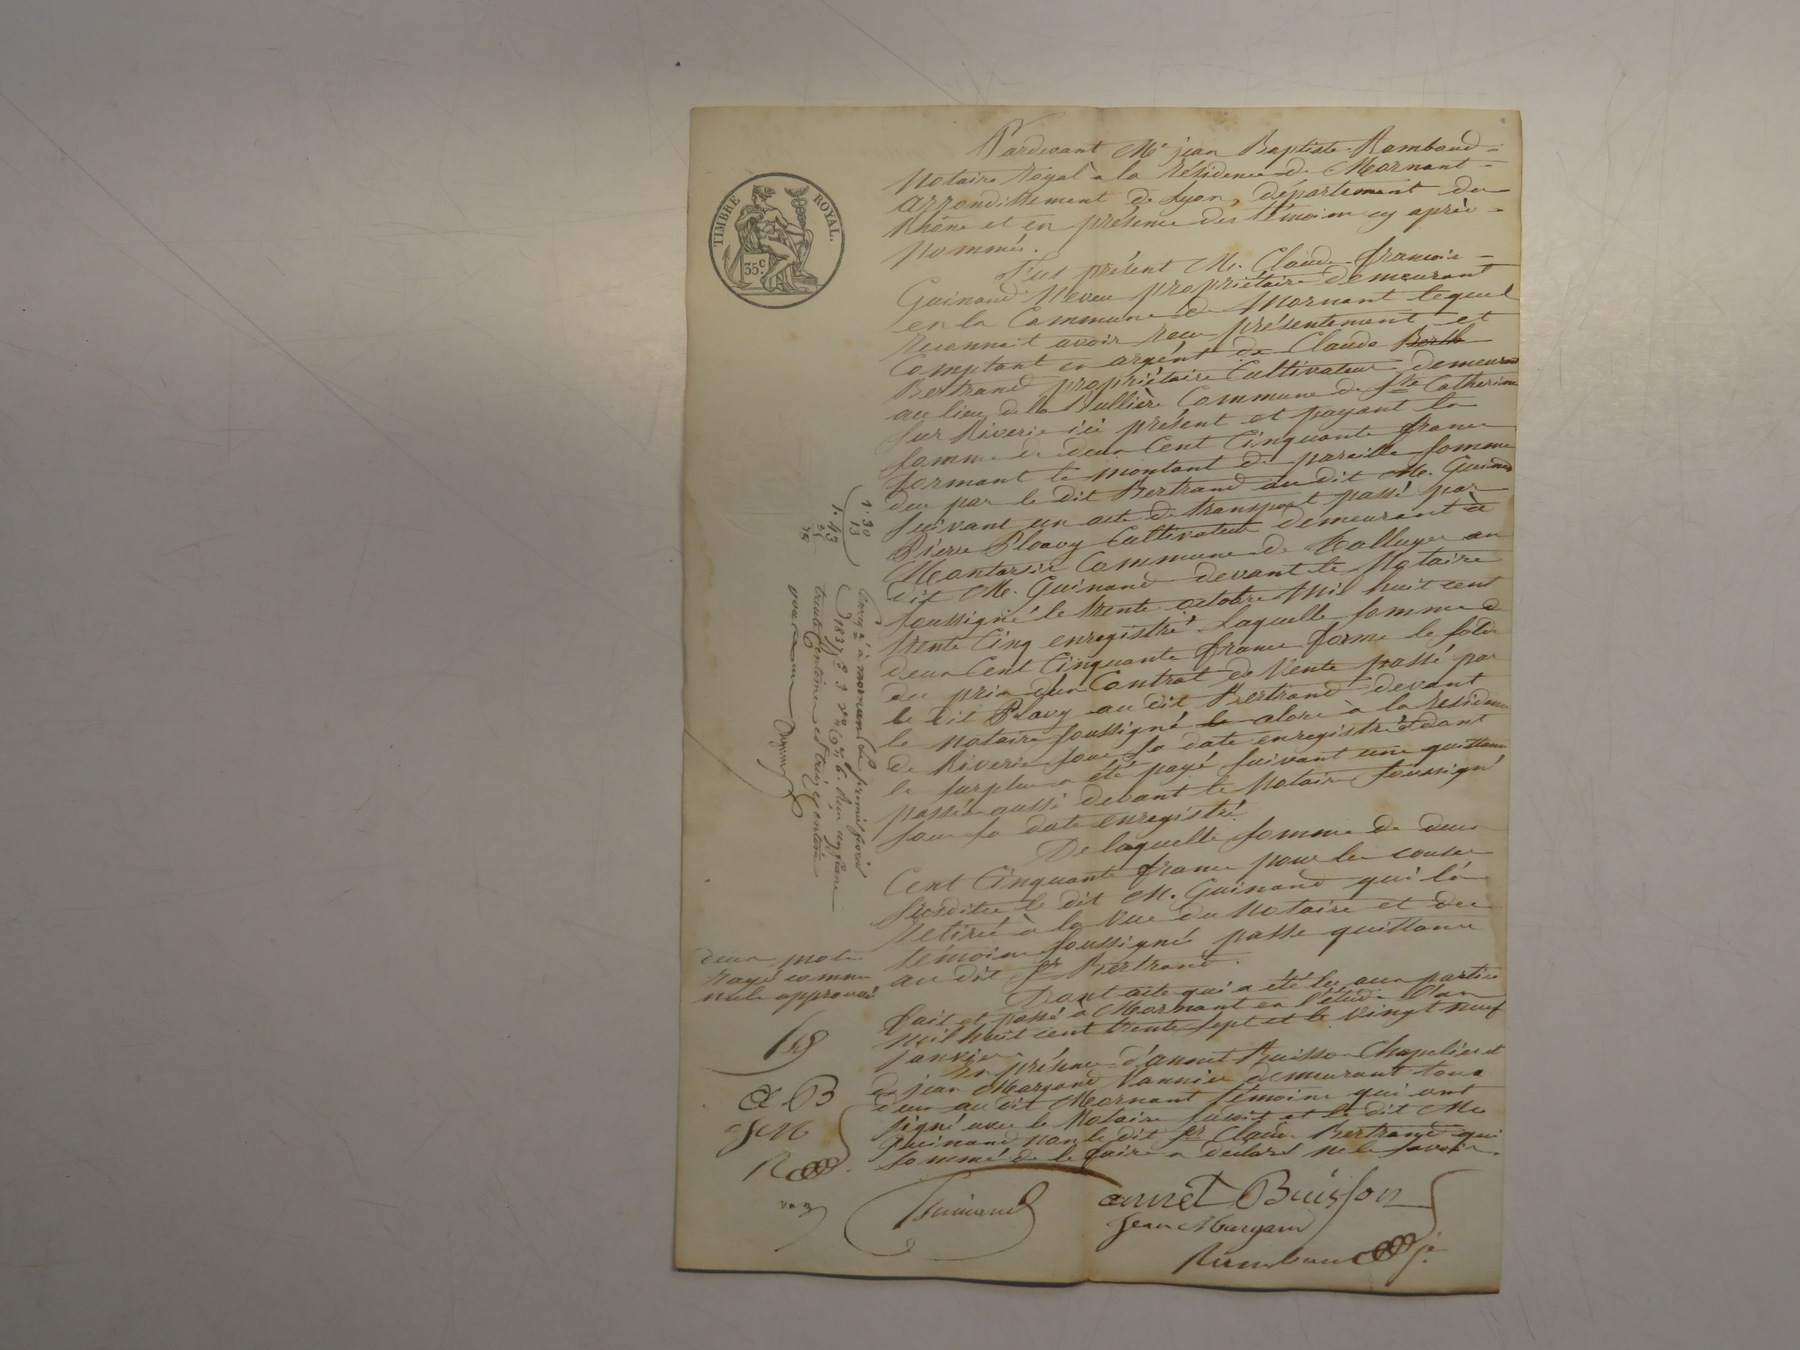 TIMBRE ROYAL.
35c.
Pardevant Me jean Baptiste Rambaud
Notaire royal à la résidence de Mornant
arrondissement de Lyon, département du
Rhône et en présence des témoins cy après
nommés.
Fut présent M. Claude françois
Guinand Neveu propriétaire demeurant
en la Commune de Mornant lequel
reconnait avoir recu présentement et
Comptant en argént de Claude
Bertrand propriétaire Cultivateur demeurant
au lieu de la Commune de Ste Catherine
sur Riverie ici présent et payant la
somme de deux Cent Cinquante francs
formant le montant de pareille somme
due par le dit Bertrand au dit M. Guinand
suivant un acte de transport passé par
Pierre Cultivateur demeurant à
Commune de au
dit M. Guinand devant le Notaire
soussigné le trente octobre Mil huit cent
trente Cinq enregistré. Laquelle somme de
deux Cent Cinquante francs forme le solde
du prix d'un Contrat de Vente passé par
le dit au dit Bertrand devant
le notaire soussigné le alors à la résidence
de Riverie sous sa date enregistré dont
le surplus a été payé suivant une quittance
passée aussi devant le Notaire soussigné
sous sa date enregistré.
De laquelle somme de deux
Cent Cinquante francs pour les causes
susdites le dit M. Guinand qui l'a
retiré à la vue du Notaire et des
témoins soussignés passe quittance
au dit sr Bertrand.
Dont acte qui a été lu aux parties
fait et passé à Mornant en l'étude l'an
mil huit cent trente sept et le Vingt neuf
janvier
En présence d'annet Buisson Chapelier et
de jean Margand Vannier demeurant tous
deux au dit Mornant témoins qui ont
signé avec le Notaire susdit et le dit M.
Guinand non le dit sr Claude Bertrand qui
sommé de le faire a déclaré ne le savoir.
deux mots
rayé comme
nuls approuvé
A B
JM
R
Guinand
annet Buisson
Jean Margand
Rambaud
1. 30
13
1. 43
35
78
à mornan Le premier fevrier
1837 Reçu un franc
trente Centimes et treize centimes
pour